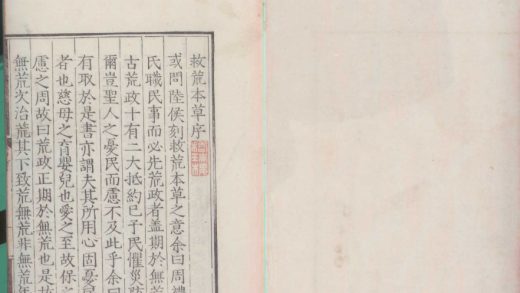 救荒本草序
或問陸侯刻救荒本草之意余曰周禮
氏職民事而必先荒政者盖期於無荒
古荒政十有二大抵約已予民懼災防
爾豈聖人之憂民而慮不及此乎余曰
有取於是書亦謂夫其所用心固憂民
者也慈母之育嬰兒也愛之至故保之
慮之周故曰荒政正期於無荒也是故
無荒次治荒其下致荒無荒非無荒年